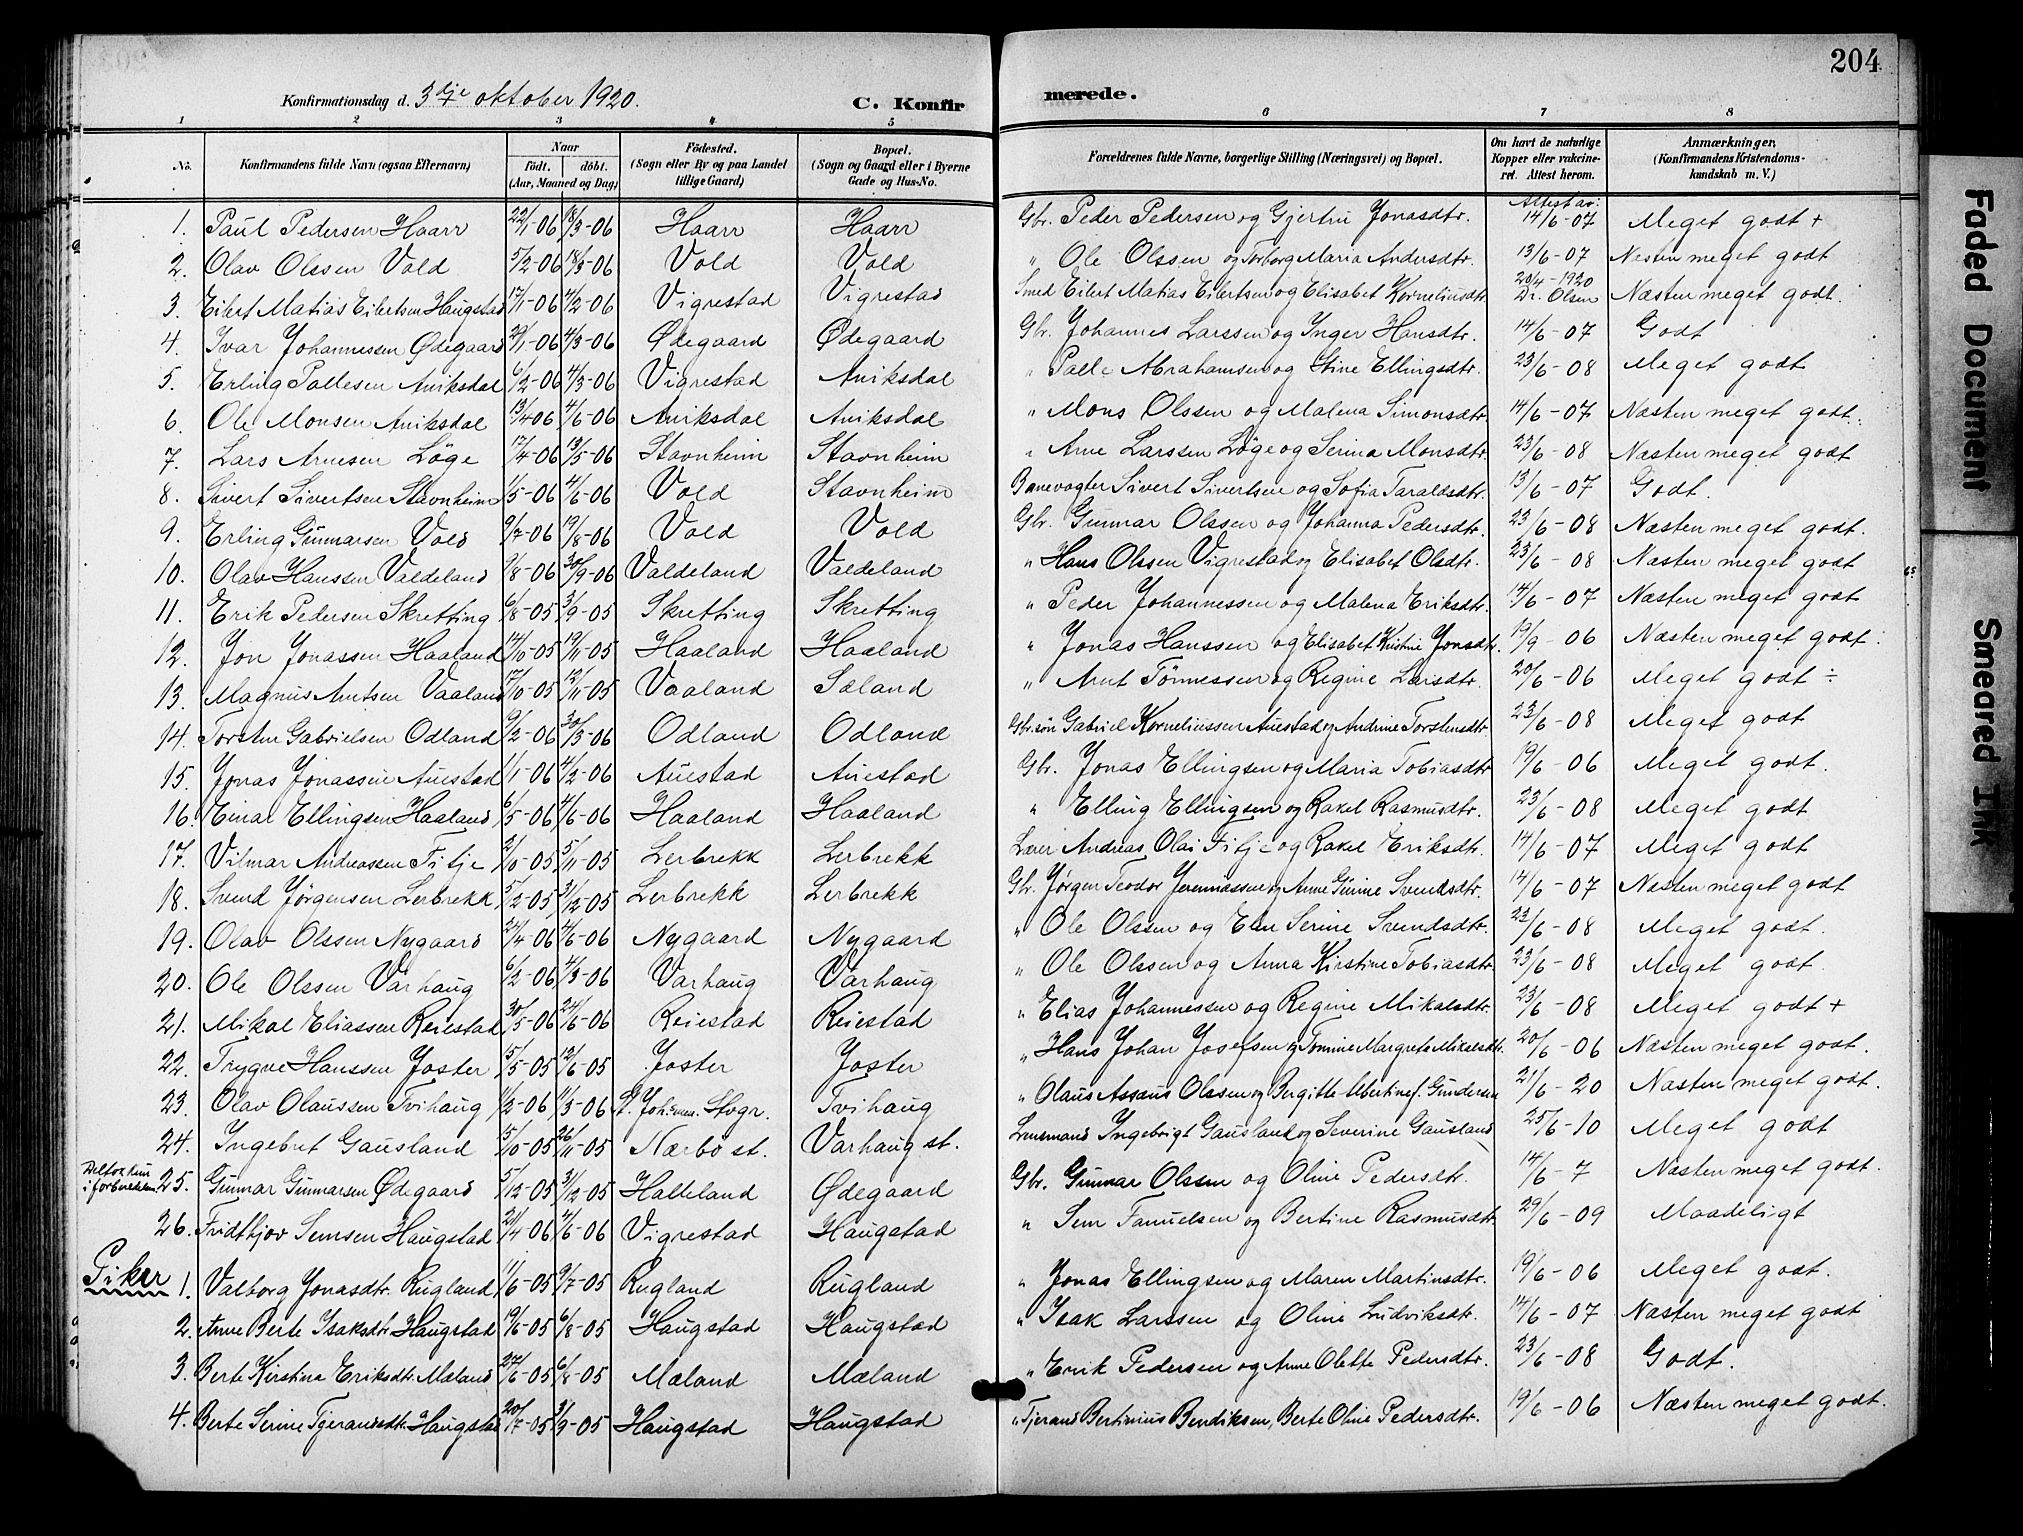 204
Konfirmationsdag d. 3dje oktober 1920. C. Konfirmerede.
1 2 3 4 5 6 7 8
No. Konfirmandens fulde Navn (ogsaa Efternavn) Naar födt. döbt. (Aar, Maaned og Dag) Födested. (Sogn eller By og paa Landet tillige Gaard) Bopæl. (Sogn og Gaard eller i Byerne Gade og Hus-No. Forældrenes fulde Navne, borgerlige Stilling (Næringsvei) og Bopæl. Om havt de naturlige Kopper eller vakcineret. Attest herom. Anmærkninger, (Konfirmandens Kristendomskundskab m. V.)
Attest av:
1. Paul Pedersen Haarr 22/1-06 18/3-06 Haarr Haarr Gbr. Peder Pedersen og Gjertru Jonasdtr. 14/6-07 Meget godt +
2. Olav Olssen Vold 5/2-06 18/3-06 Vold Vold " Ole Olssen og Torborg Maria Andersdtr. 13/6-07 Næsten meget godt
3. Eilert Matias Eilertsen Haugstad 17/1-06 4/2-06 Vigrestad Vigrestad Smed Eilert Matias Eilertsen og Elisabet Korneliusdtr. 20/4-1920 Dr. Olsen Næsten meget godt.
4. Ivar Johannessen Ødegaard 29/1-06 4/3-06 Ødegaard Ødegaard Gbr. Johannes Larssen og Inger Hansdtr. 14/6-07 Godt
5. Erling Pallesen Aniksdal 6/2-06 4/3-06 Vigrestad Aniksdal " Palle Abrahamsen og Stine Ellingsdtr. 23/6-08 Meget godt
6. Ole Monsen Aniksdal 13/4 06 4/6-06 Aniksdal Aniksdal " Mons Olssen og Malena Simonsdtr. 14/6-07 Næsten meget godt.
7. Lars Arnesen Löge 17/4-06 13/5-06 Stavnheim Stavnheim " Arne Larssen Löge og Serina Monsdtr. 23/6-08 Næsten meget godt
8. Sivert Sivertsen Stavnheim 1/5-06 4/6-06 Vold Stavnheim Banevogter Sivert Sivertsen og Sofia Taraldsdtr. 13/6-07 Godt.
9. Erling Gunnarsen Vold 9/7-06 19/8-06 Vold Vold Gbr. Gunnar Olssen og Johanna Pedersdtr. 23/6-08 Næsten meget godt.
10. Olav Hanssen Valdeland 9/8-06 30/9-06 Valdeland Valdeland " Hans Olssen Vigrestad og Elisabet Olsdtr. 23/6-08 Næsten meget godt
11. Erik Pedersen Skretting 6/8-05 3/9-05 Skretting Skretting " Peder Johannessen og Malena Eriksdtr. 14/6-07 Næsten meget godt
12. Jon Jonassen Haaland 14/10-05 19/11-05 Haaland Haaland " Jonas Hanssen og Elisabet Kistine Jonsdtr. 19/9-06 Næsten meget godt
13. Magnus Arntsen Vaaland 17/10-05 12/11-05 Vaaland Sæland " Arnt Tönnessen og Regine Larsdtr. 20/6-06 Meget godt ÷
14. Torsten Gabrielsen Odland 9/2-06 30/3-06 Odland Odland Gbr.sön Gabriel Korneliussen Auestad og Andrine Torstensdtr. 23/6-08 Meget godt
15. Jonas Jonassen Auestad 1/1-06 4/2-06 Auestad Auestad Gbr. Jonas Ellingsen og Maria Tobiasdtr. 19/6-06 Meget godt.
16. Einar Ellingsen Haaland 6/5-06 4/6-06 Haaland Haaland " Elling Ellingsen og Rakel Rasmusdtr. 23/6-08 Meget godt
17. Vilmar Andreassen Fitje 2/10-05 5/11-05 Lerbrekk Lerbrekk Lærer Andreas Olai Fitje og Rakel Eriksdtr. 14/6-07 Meget godt
18. Svend Jørgensen Lerbrekk 5/12-05 31/12-05 Lerbrekk Lerbrekk Gbr. Jørgen Teodor Jeremiassen og Anne Gurine Svendsdtr. 14/6-07 Næsten meget godt
19. Olav Olssen Nygaard 24/4-06 4/6-06 Nygaard Nygaard " Ole Olssen og Elen Serine Svendsdtr. 23/6-08 Meget godt.
20. Ole Olssen Varhaug 6/2-06 4/3-06 Varhaug Varhaug " Ole Olssen og Anna Kirstine Tobiasdtr. 23/6-08 Meget godt.
21. Mikal Eliassen Reiestad 30/5-06 24/6-06 Reiestad Reiestad " Elias Johannessen og Regine Mikalsdtr. 23/6-08 Meget godt +
22. Trygve Hanssen Joster 15/5-05 12/6-05 Joster Joster " Hans Johan Josefsen og Tomine Margrete Mikalsdtr. 20/6-06 Næsten meget godt.
23. Olav Olaussen Tvihaug 11/2-06 11/3-06 St. Johannes Stvgr. Tvihaug " Olaus Assaus Olssen og Bergitte Albertine f. Gundersen 21/6-20 Næsten meget godt.
24. Ingebret Gausland 15/10-05 26/11-05 Nærbö st. Varhaug st. Lensmand Ingebrigt Gausland og Severine Gausland 25/6-10 Meget godt
Deltok kun i forberedelsen
25. Gunnar Gunnarsen Ødegaard 5/12-05 31/12-05 Halleland Ødegaard Gbr. Gunnar Olssen og Oline Pedersdtr. 14/6-7 Næsten meget godt.
26. Fridthjov Semsen Haugstad 21/4-06 4/6-06 Vigrestad Haugstad " Sem Fanuelsen og Bertine Rasmusdtr. 29/6-09 Maadeligt
Piker
1. Valborg Jonasdtr. Rugland 11/6-05 9/7-05 Rugland Rugland " Jonas Ellingsen og Maren Martinsdtr. 19/6-06 Meget godt.
2. Anne Berte Isaksdtr. Haugstad 19/6-05 6/8-05 Haugstad Haugstad " Isak Larssen og Oline Ludviksdtr. 14/6-07 Næsten meget godt
3. Berte Kirstina Eriksdtr. Mæland 27/6-05 6/8-05 Mæland Mæland " Erik Pedersen og Anne Olette Pedersdtr. 23/6-08 Godt.
4. Berte Serine Tjerandsdtr. Haugstad 20/7-05 3/9-05 Haugstad Haugstad " Tjerand Bertinius Bendiksen, Berte Oline Pedersdtr. 19/6-06 Næsten meget godt.
Faded Document
Smeared Ink